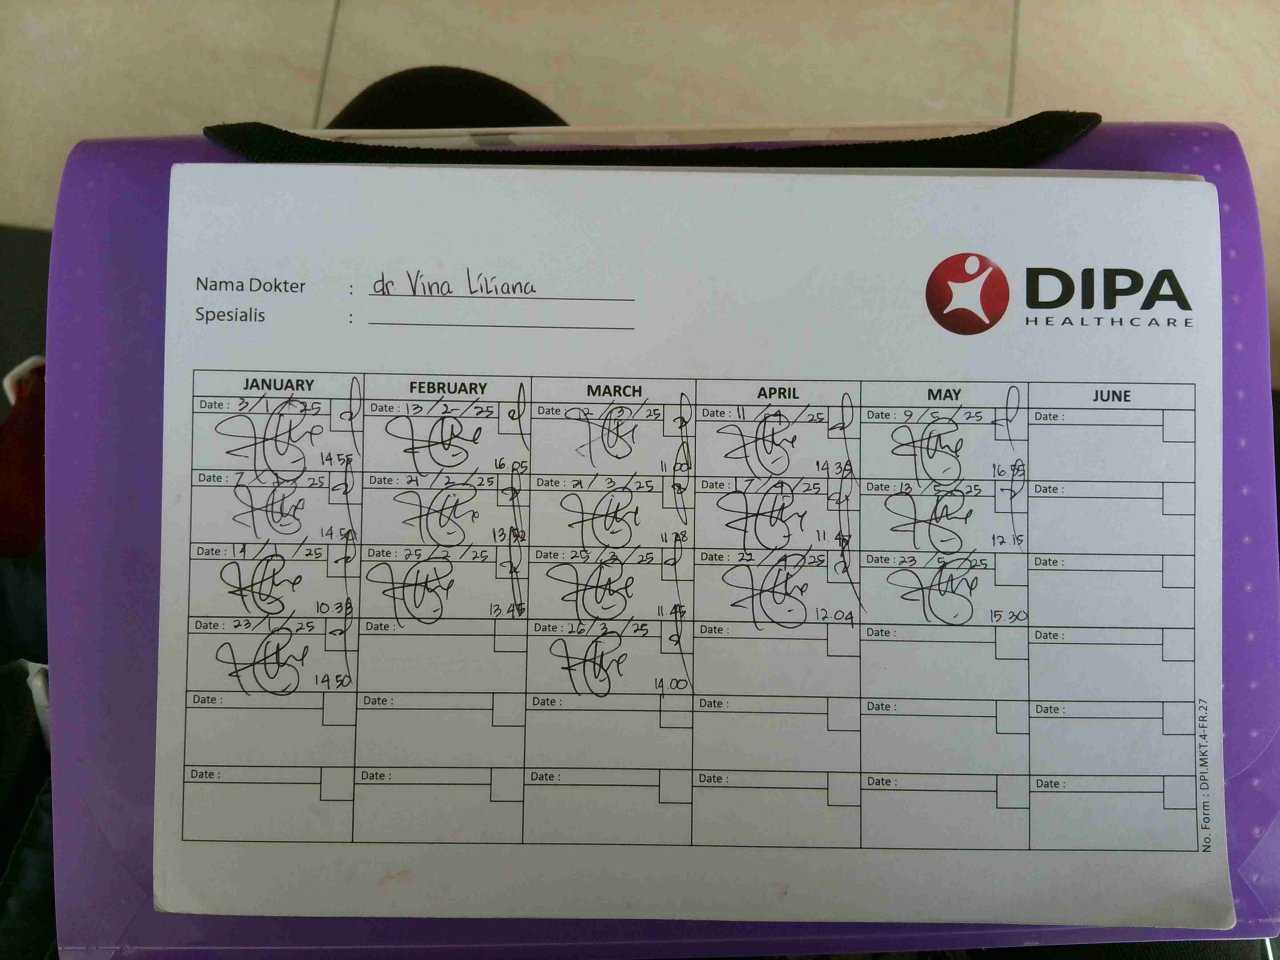 Nama Dokter : dr Vina Liliana
Spesialis :
DIPA
HEALTHCARE
JANUARY FEBRUARY MARCH APRIL MAY JUNE
Date : 3/1/25 Date : 13/2/25 Date : 12/3/25 Date : 11/4/25 Date : 9/5/25 Date :
14.55 16.05 11.00 14.35 16.55
Date : 7 25 Date : 21/2/25 Date : 21/3/25 Date : /4/25 Date : 13/5/25 Date :
14.50 13.52 11.28 11.47 12.15
Date : 14 25 Date : 25/2/25 Date : 25/3/25 Date : 22/4/25 Date : 23/5/25 Date :
10.33 13.45 11.45 12.04 15.30
Date : 23/1/25 Date : Date : 26/3/25 Date : Date : Date :
14.50 14.00
Date : Date : Date : Date : Date : Date :
Date : Date : Date : Date : Date : Date :
No. Form : DPI.MKT.4-FR.27